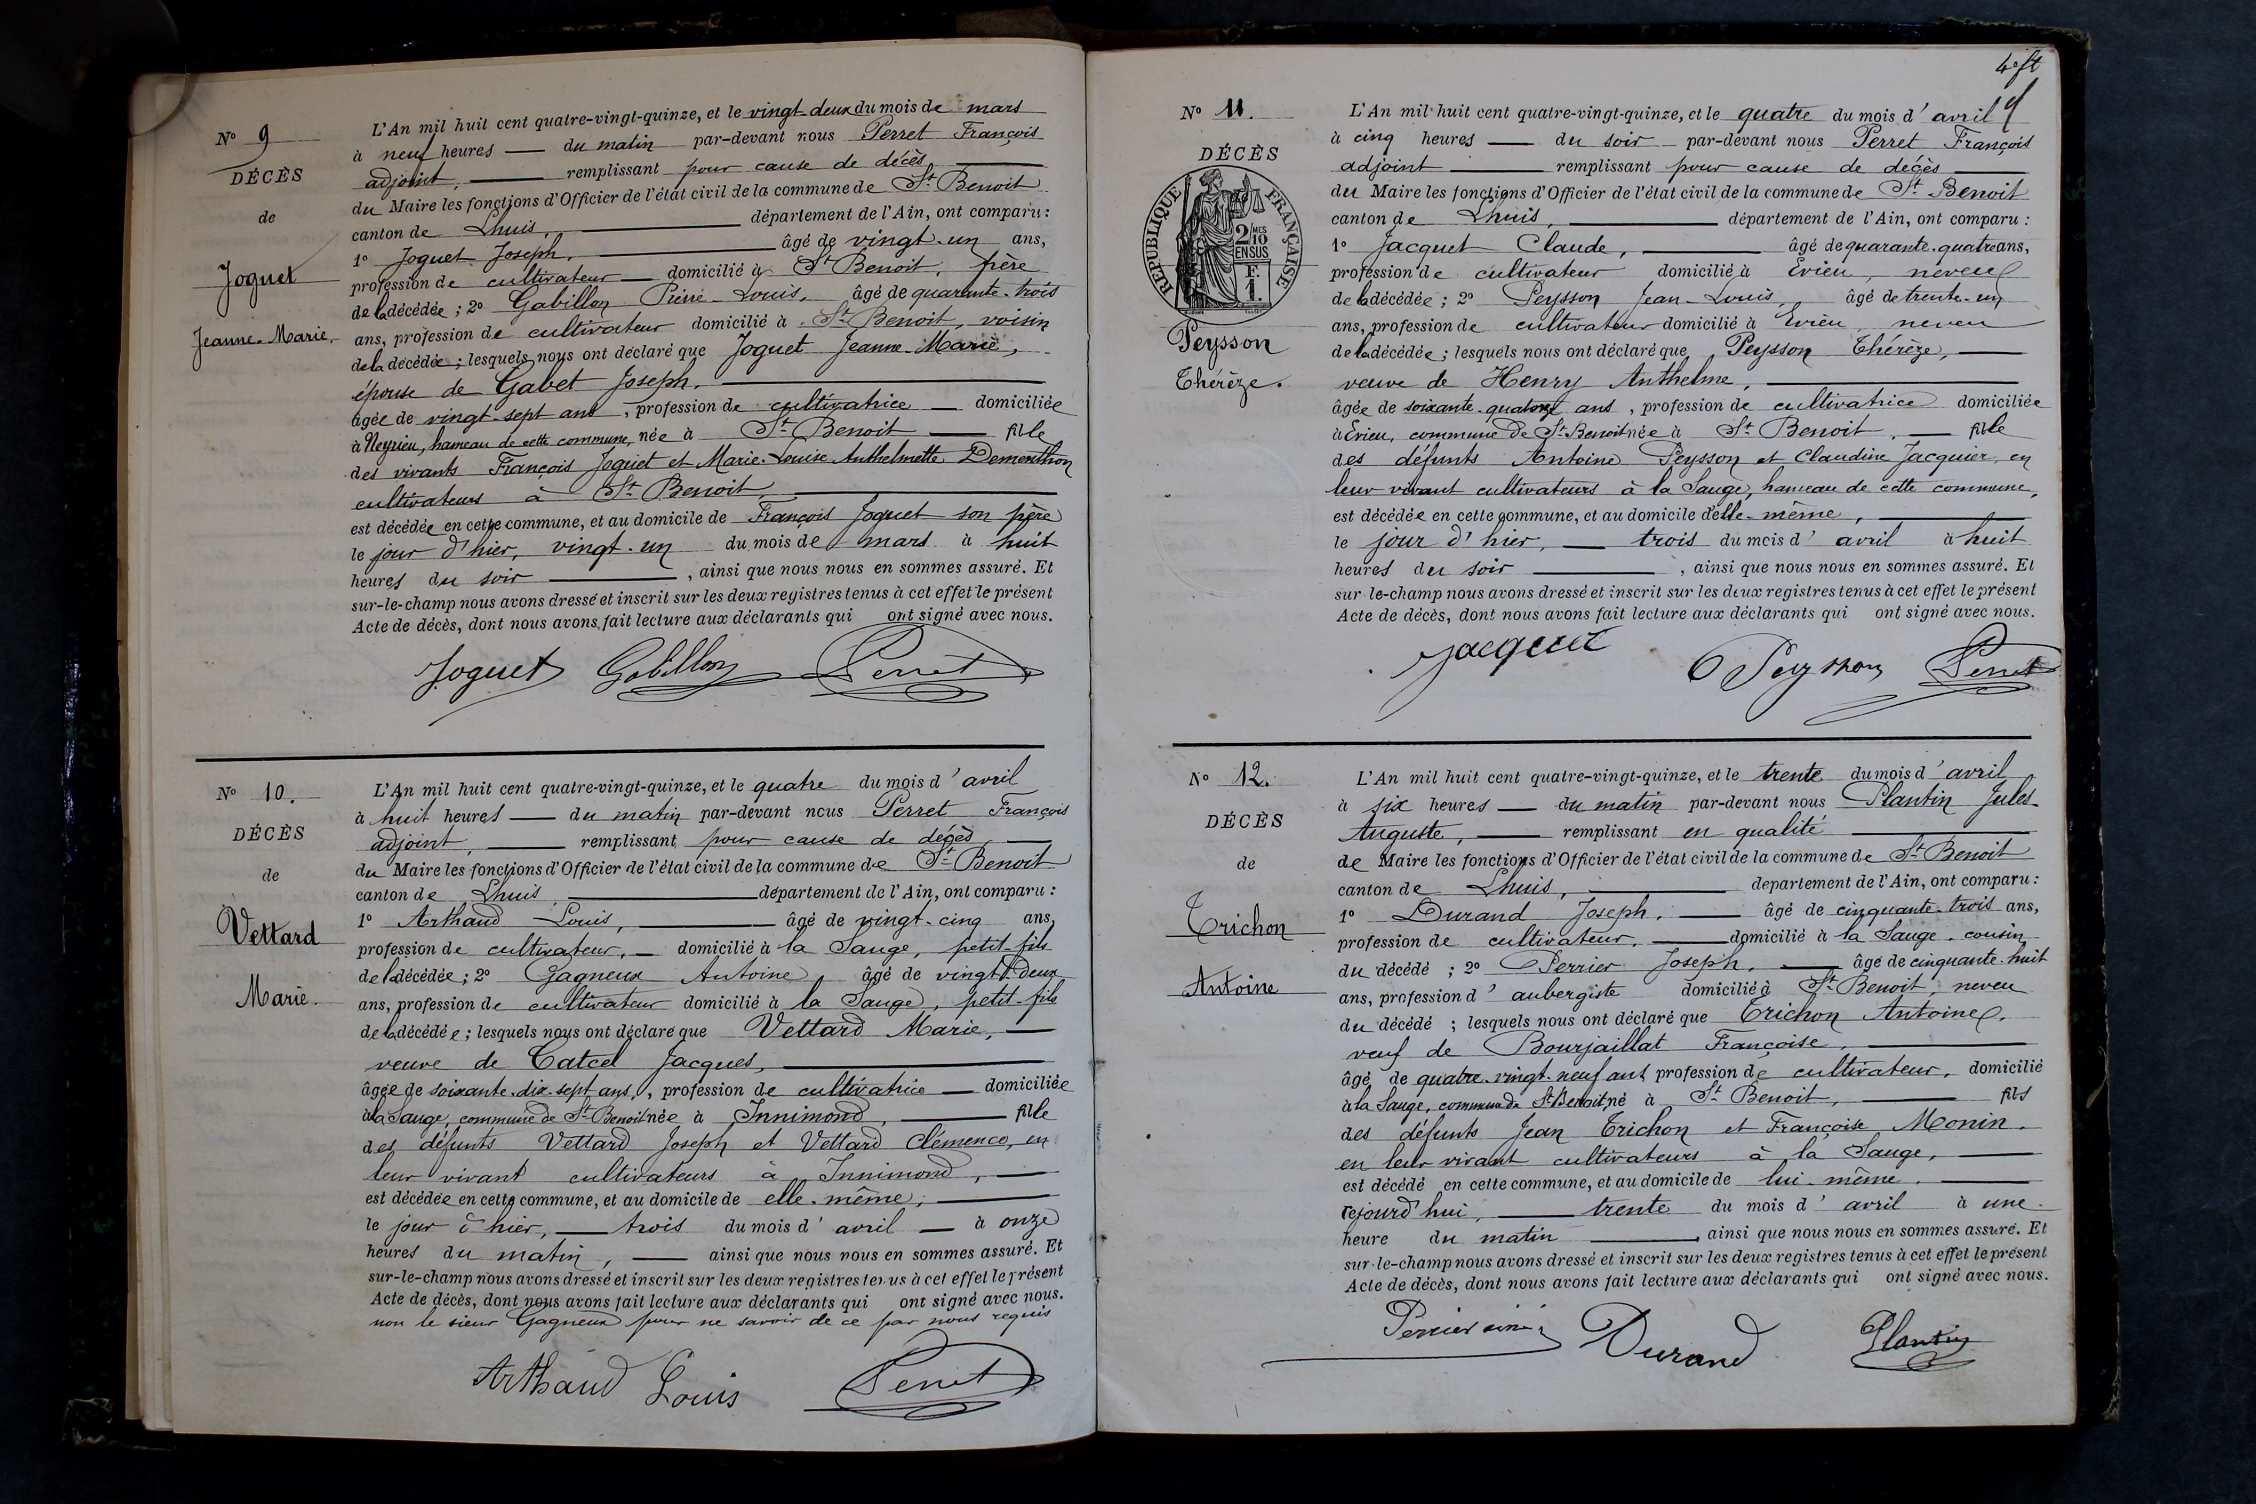 Nº 9
DÉCÈS
de
Joguet
Jeanne-Marie.
L'An mil huit cent quatre-vingt-quinze, et le vingt-deux du mois de mars
à neuf heures — du matin par-devant nous Perret François
adjoint, — remplissant pour cause de décès
du Maire les fonctions d'Officier de l'état civil de la commune de St Benoit
canton de Lhuis, — département de l'Ain, ont comparu :
1º Joguet Joseph, — âgé de vingt-un ans,
profession de cultivateur — domicilié à St Benoit, frère
de la décédée ; 2º Gabillon Pierre-Louis, âgé de quarante-trois
ans, profession de cultivateur domicilié à St Benoit, voisin
de la décédée ; lesquels nous ont déclaré que Joguet Jeanne-Marie,
épouse de Gabet Joseph. —
âgée de vingt-sept ans, profession de cultivatrice — domiciliée
à Neyrieu, hameau de cette commune, née à St Benoit — fille
des vivants François Joguet et Marie-Louise Anthelmette Dementhon
cultivateurs à St Benoit, —
est décédée en cette commune, et au domicile de François Joguet son père
le jour d'hier, vingt-un du mois de mars à huit
heures du soir —, ainsi que nous nous en sommes assuré. Et
sur-le-champ nous avons dressé et inscrit sur les deux registres tenus à cet effet le présent
Acte de décès, dont nous avons fait lecture aux déclarants qui ont signé avec nous.
Joguet Gabillon Perret
Nº 10.
DÉCÈS
de
Vettard
Marie.
L'An mil huit cent quatre-vingt-quinze, et le quatre du mois d'avril
à huit heures — du matin par-devant nous Perret François
adjoint, — remplissant pour cause de décès —
du Maire les fonctions d'Officier de l'état civil de la commune de St Benoit
canton de Lhuis — département de l'Ain, ont comparu :
1º Arthaud Louis, — âgé de vingt-cinq ans,
profession de cultivateur, — domicilié à la Sauge, petit-fils
de la décédée ; 2º Gagneux Antoine âgé de vingt-deux
ans, profession de cultivateur domicilié à la Sauge, petit-fils
de la décédée ; lesquels nous ont déclaré que Vettard Marie, —
veuve de Catcel Jacques, —
âgée de soixante-dix-sept ans, profession de cultivatrice — domiciliée
à la Sauge, commune de St Benoit née à Innimond, — fille
des défunts Vettard Joseph et Vettard Clémence, en
leur vivant cultivateurs à Innimond, —
est décédée en cette commune, et au domicile de elle-même, —
le jour d'hier, — trois du mois d'avril — à onze
heures du matin, — ainsi que nous nous en sommes assuré. Et
sur-le-champ nous avons dressé et inscrit sur les deux registres tenus à cet effet le présent
Acte de décès, dont nous avons fait lecture aux déclarants qui ont signé avec nous.
non le sieur Gagneux pour ne savoir de ce par nous requis
Arthaud Louis Perret
Nº 11.
DÉCÈS
REPUBLIQUE FRANÇAISE
2/10 MES
EN SUS
F.
1.
Peysson
Thérèze.
L'An mil huit cent quatre-vingt-quinze, et le quatre du mois d'avril
à cinq heures — du soir — par-devant nous Perret François
adjoint — remplissant pour cause de décès —
du Maire les fonctions d'Officier de l'état civil de la commune de St Benoit
canton de Lhuis, — département de l'Ain, ont comparu :
1º Jacquet Claude, — âgé de quarante-quatre ans,
profession de cultivateur domicilié à Evieu, neveu
de la décédée ; 2º Peysson Jean-Louis, âgé de trente-un
ans, profession de cultivateur domicilié à Evieu, neveu
de la décédée ; lesquels nous ont déclaré que Peysson Thérèze, —
veuve de Henry Anthelme, —
âgée de soixante-quatorze ans, profession de cultivatrice domiciliée
à Evieu, commune de St Benoit née à St Benoit, — fille
des défunts Antoine Peysson et Claudine Jacquier, en
leur vivant cultivateurs à la Sauge, hameau de cette commune,
est décédée en cette commune, et au domicile d'elle-même, —
le jour d'hier, — trois du mois d'avril à huit
heures du soir —, ainsi que nous nous en sommes assuré. Et
sur-le-champ nous avons dressé et inscrit sur les deux registres tenus à cet effet le présent
Acte de décès, dont nous avons fait lecture aux déclarants qui ont signé avec nous.
Jacquet Peysson Perret
Nº 12.
DÉCÈS
de
Trichon
Antoine
L'An mil huit cent quatre-vingt-quinze, et le trente du mois d'avril
à six heures — du matin par-devant nous Plantin Jules-
Auguste, — remplissant en qualité —
de Maire les fonctions d'Officier de l'état civil de la commune de St Benoit
canton de Lhuis, — département de l'Ain, ont comparu :
1º Durand Joseph, — âgé de cinquante-trois ans,
profession de cultivateur, — domicilié à la Sauge, cousin
du décédé ; 2º Perrier Joseph, — âgé de cinquante-huit
ans, profession d'aubergiste domicilié à St Benoit, neveu
du décédé ; lesquels nous ont déclaré que Trichon Antoine,
veuf de Bourjaillat Françoise, —
âgé de quatre-vingt-neuf ans profession de cultivateur, domicilié
à la Sauge, commune de St Benoit, né à St Benoit, — fils
des défunts Jean Trichon et Françoise Monin.
en leur vivant cultivateurs à la Sauge, —
est décédé en cette commune, et au domicile de lui-même. —
cejourd'hui, — trente du mois d'avril à une
heure du matin —, ainsi que nous nous en sommes assuré. Et
sur-le-champ nous avons dressé et inscrit sur les deux registres tenus à cet effet le présent
Acte de décès, dont nous avons fait lecture aux déclarants qui ont signé avec nous.
Perrier ainé Durand Plantin